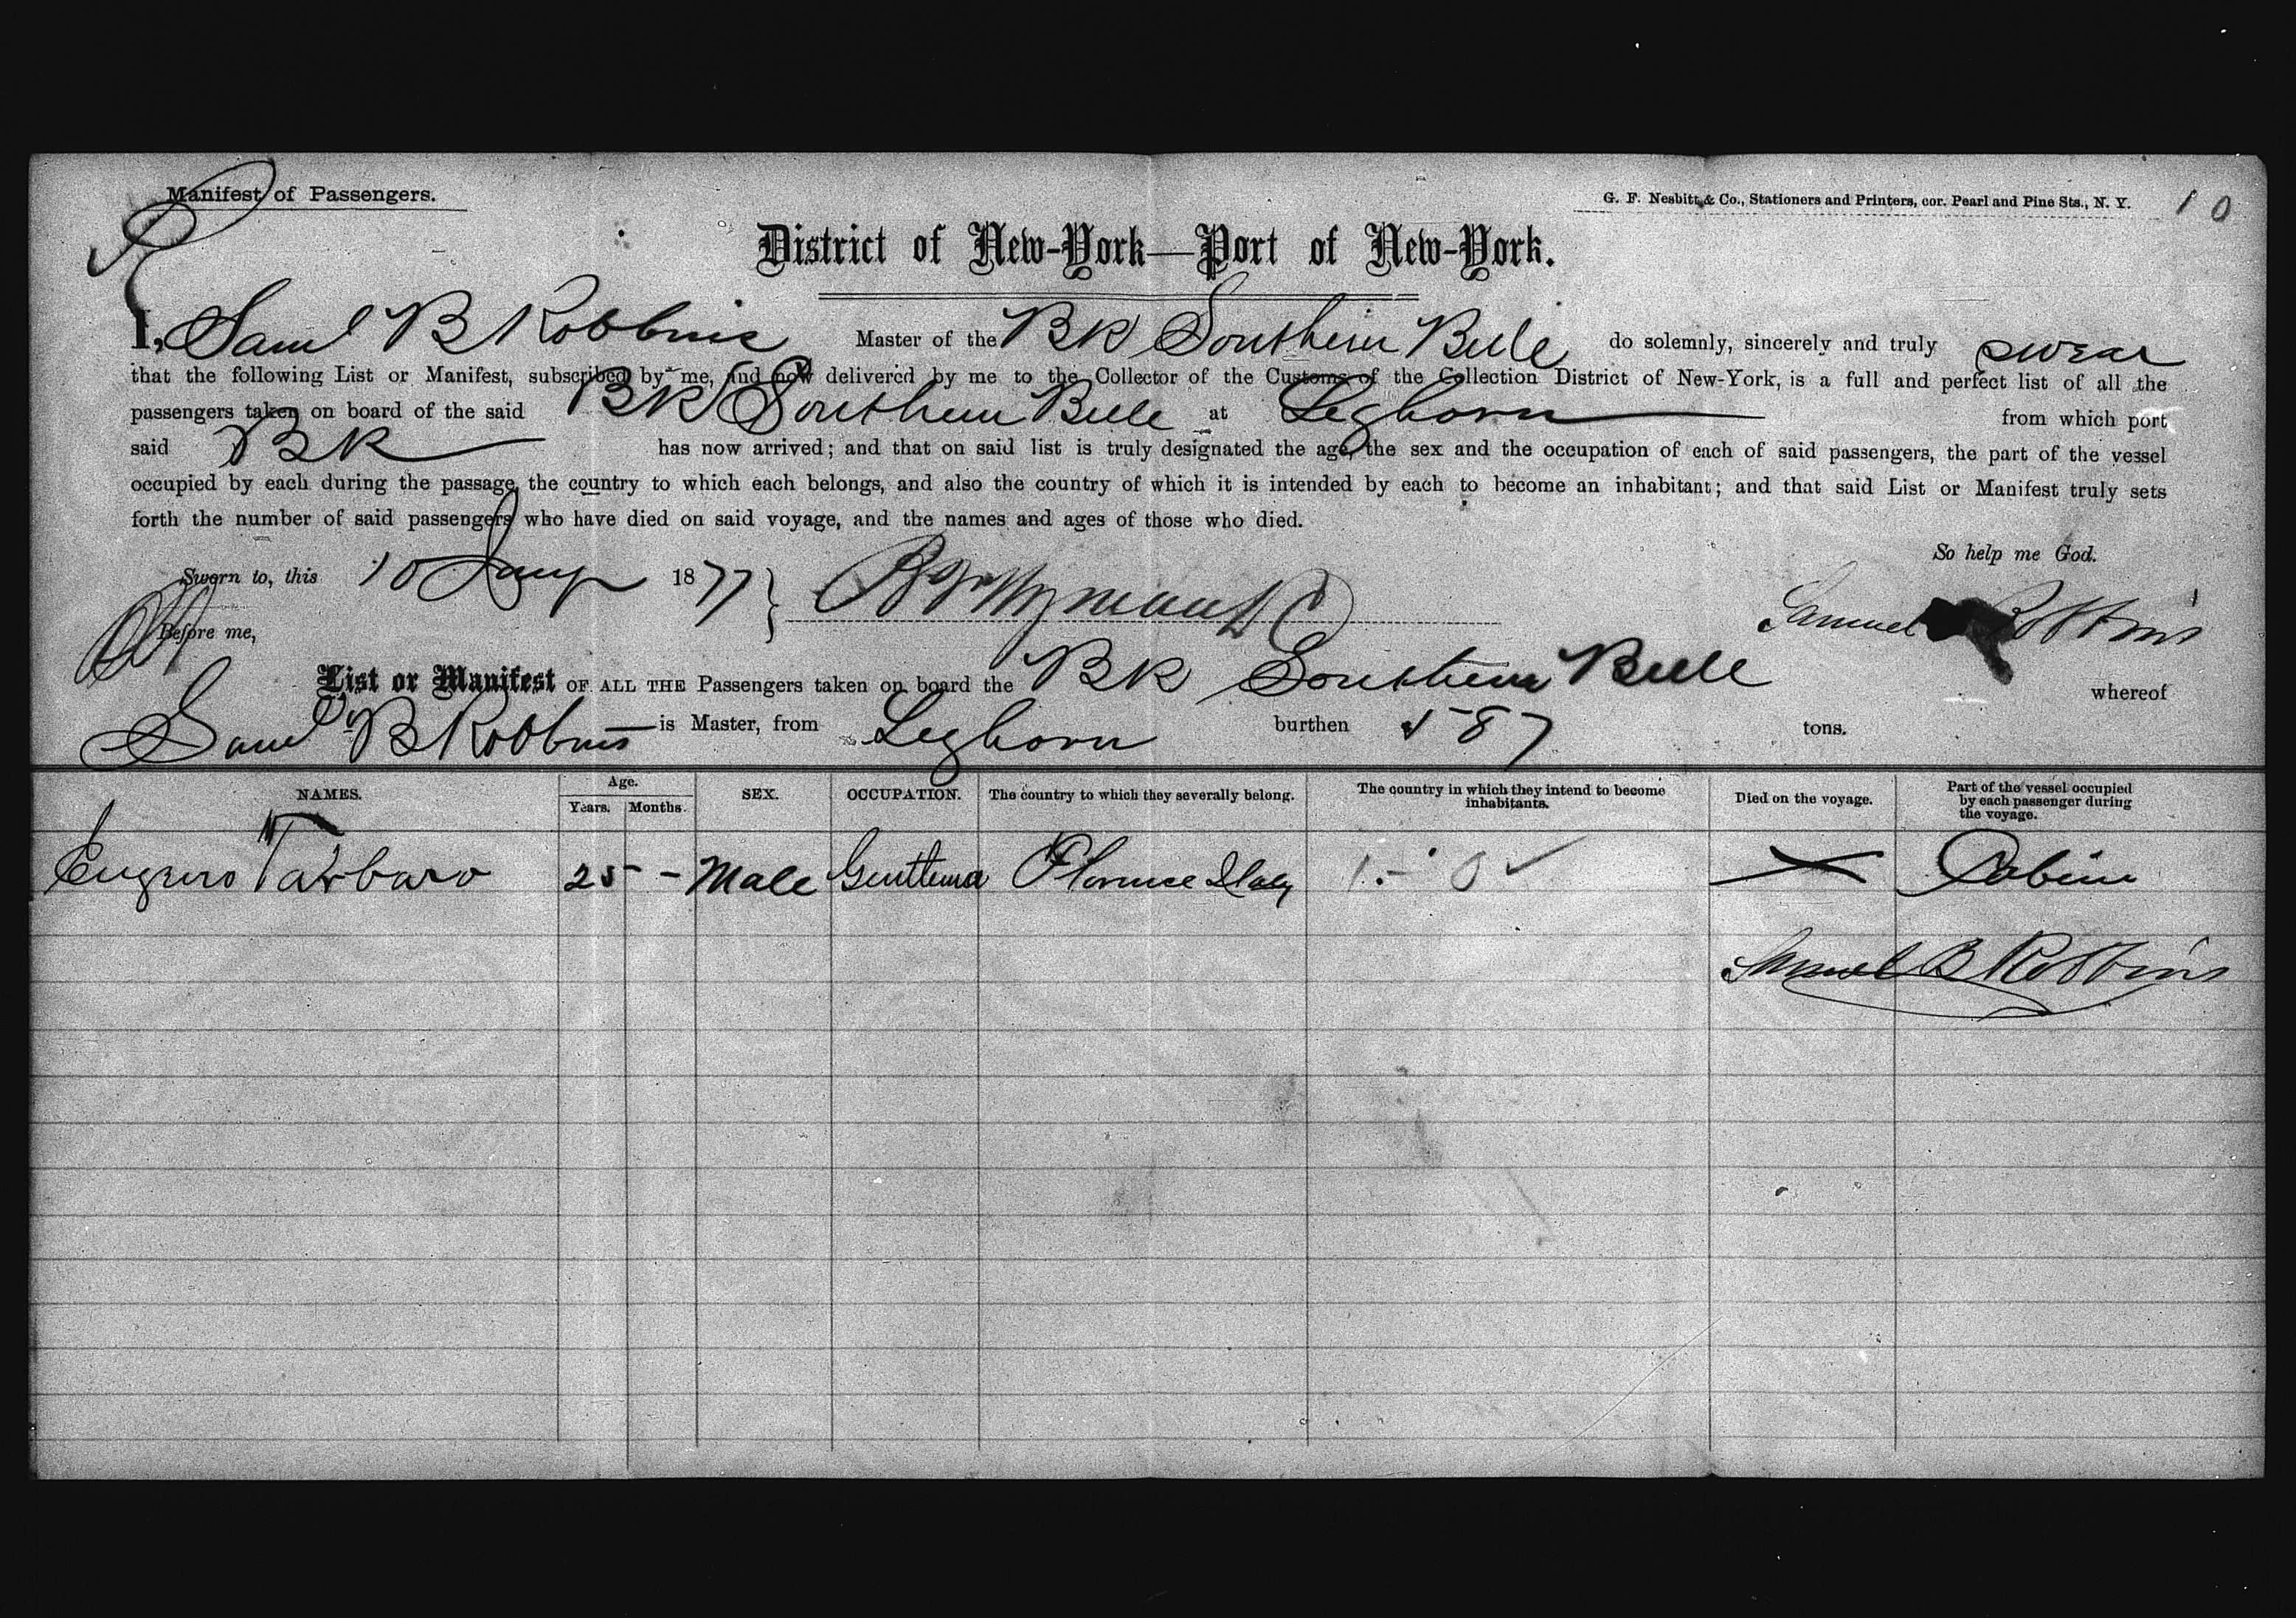 Manifest of Passengers.
G. F. Nesbitt & Co., Stationers and Printers, cor. Pearl and Pine Sts., N. Y.
10
District of New-York—Port of New-York.
I, Saml B Robbins Master of the Bk Southern Belle do solemnly, sincerely and truly swear
that the following List or Manifest, subscribed by me, and now delivered by me to the Collector of the Customs of the Collection District of New-York, is a full and perfect list of all the
passengers taken on board of the said Bk Southern Belle at Leghorn from which port
said Bk has now arrived; and that on said list is truly designated the age, the sex and the occupation of each of said passengers, the part of the vessel
occupied by each during the passage, the country to which each belongs, and also the country of which it is intended by each to become an inhabitant; and that said List or Manifest truly sets
forth the number of said passengers who have died on said voyage, and the names and ages of those who died.
So help me God.
Sworn to, this 10 Jany 1877
Samuel Robbins
Before me,
List or Manifest OF ALL THE Passengers taken on board the Bk Southern Belle whereof
Saml B Robbins is Master, from Leghorn burthen 587 tons.
NAMES. Age. Years. Months. SEX. OCCUPATION. The country to which they severally belong. The country in which they intend to become inhabitants. Died on the voyage. Part of the vessel occupied by each passenger during the voyage.
25 - Male Gentleman Florence Italy Cabin
Samuel B Robbins